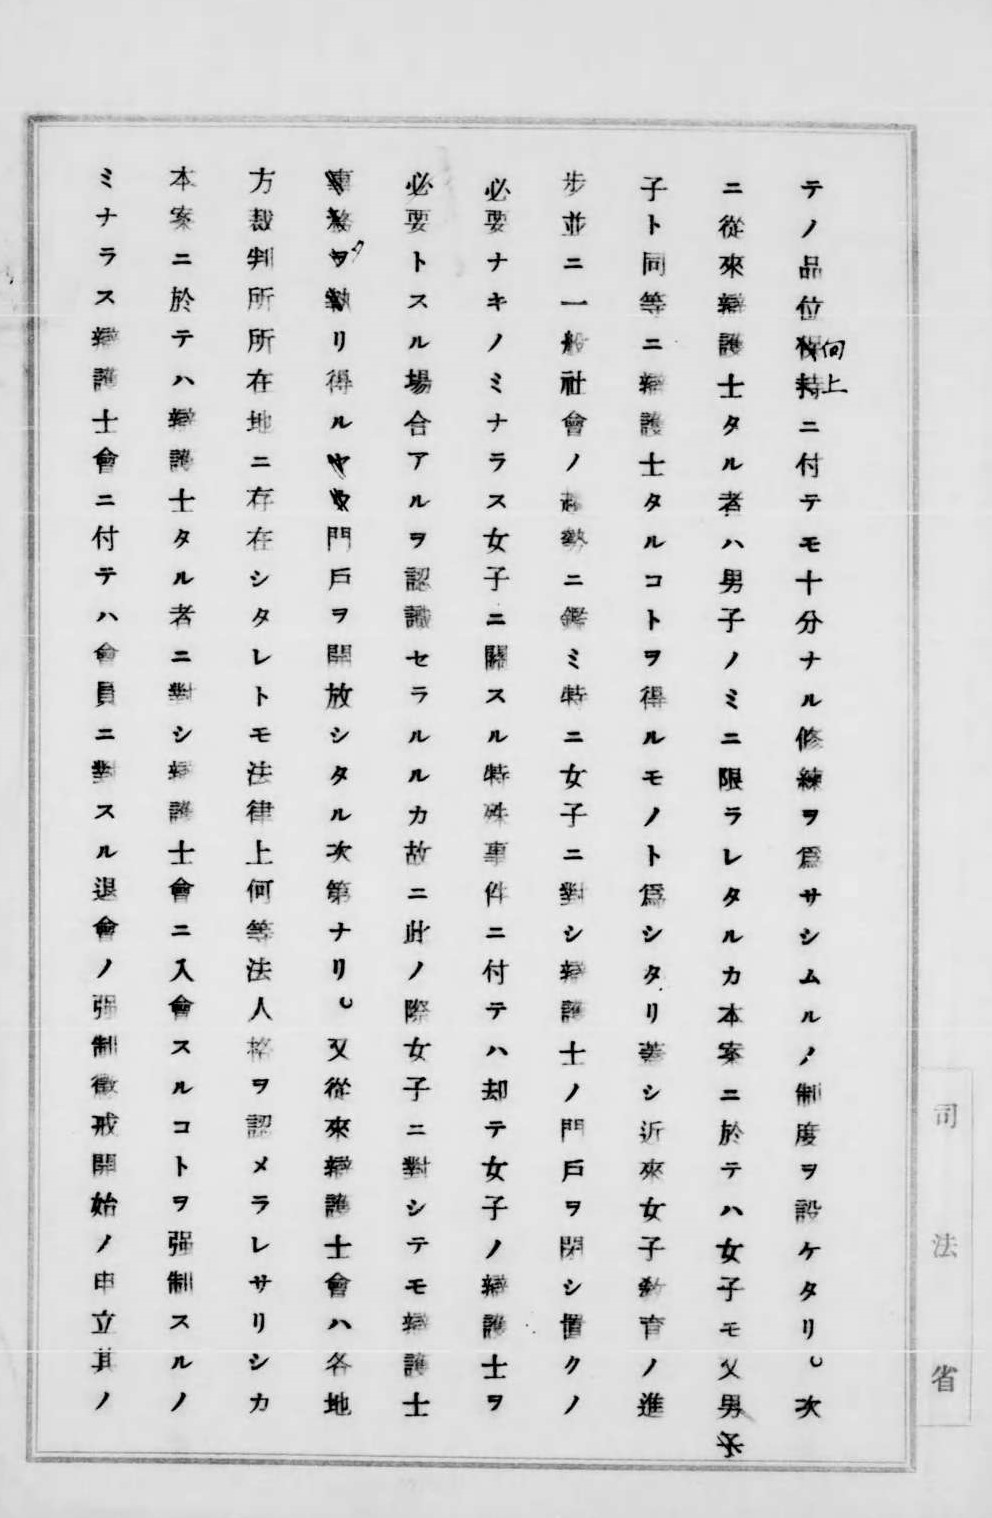 テノ品位向上ニ付テモ十分ナル修練ヲ爲サシムルノ制度ヲ設ケタリ。次
ニ從來辯護士タル者ハ男子ノミニ限ラレタルカ本案ニ於テハ女子モ又男
子ト同等ニ辯護士タルコトヲ得ルモノト爲シタリ蓋シ近來女子敎育ノ進
步並ニ一般社會ノ趨勢ニ鑑ミ特ニ女子ニ對シ辯護士ノ門戶ヲ閉シ置クノ
必要ナキノミナラス女子ニ關スル特殊事件ニ付テハ却テ女子ノ辯護士ヲ
必要トスル場合アルヲ認識セラルルカ故ニ此ノ際女子ニ對シテモ辯護士
ノ門戶ヲ開放シタル次第ナリ。又從來辯護士會ハ各地
方裁判所所在地ニ存在シタレトモ法律上何等法人格ヲ認メラレサリシカ
本案ニ於テハ辯護士タル者ニ對シ辯護士會ニ入會スルコトヲ强制スルノ
ミナラス辯護士會ニ付テハ會員ニ對スル退會ノ强制懲戒開始ノ申立其ノ
司法省